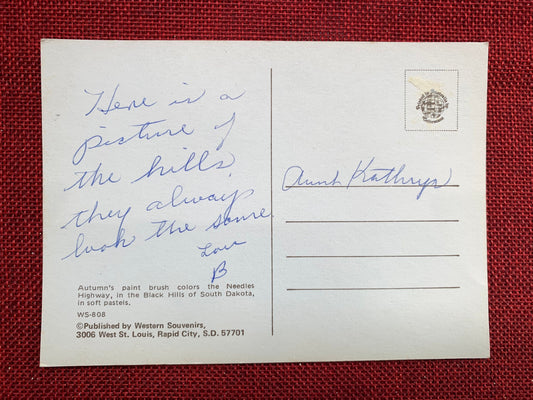 Here is a
picture of
the hills,
they always
look the same
Love
B
Aunt Kathryn
Autumn's paint brush colors the Needles
Highway, in the Black Hills of South Dakota,
in soft pastels.
WS-808
©Published by Western Souvenirs,
3006 West St. Louis, Rapid City, S.D. 57701